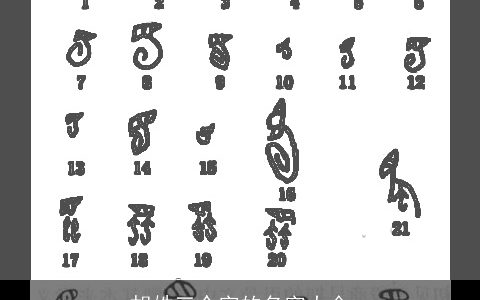 1 2 3 4 5 6
7 8 9 10 11 12
13 14 15 16
17 18 19 20 21
胡姓三个字的名字大全